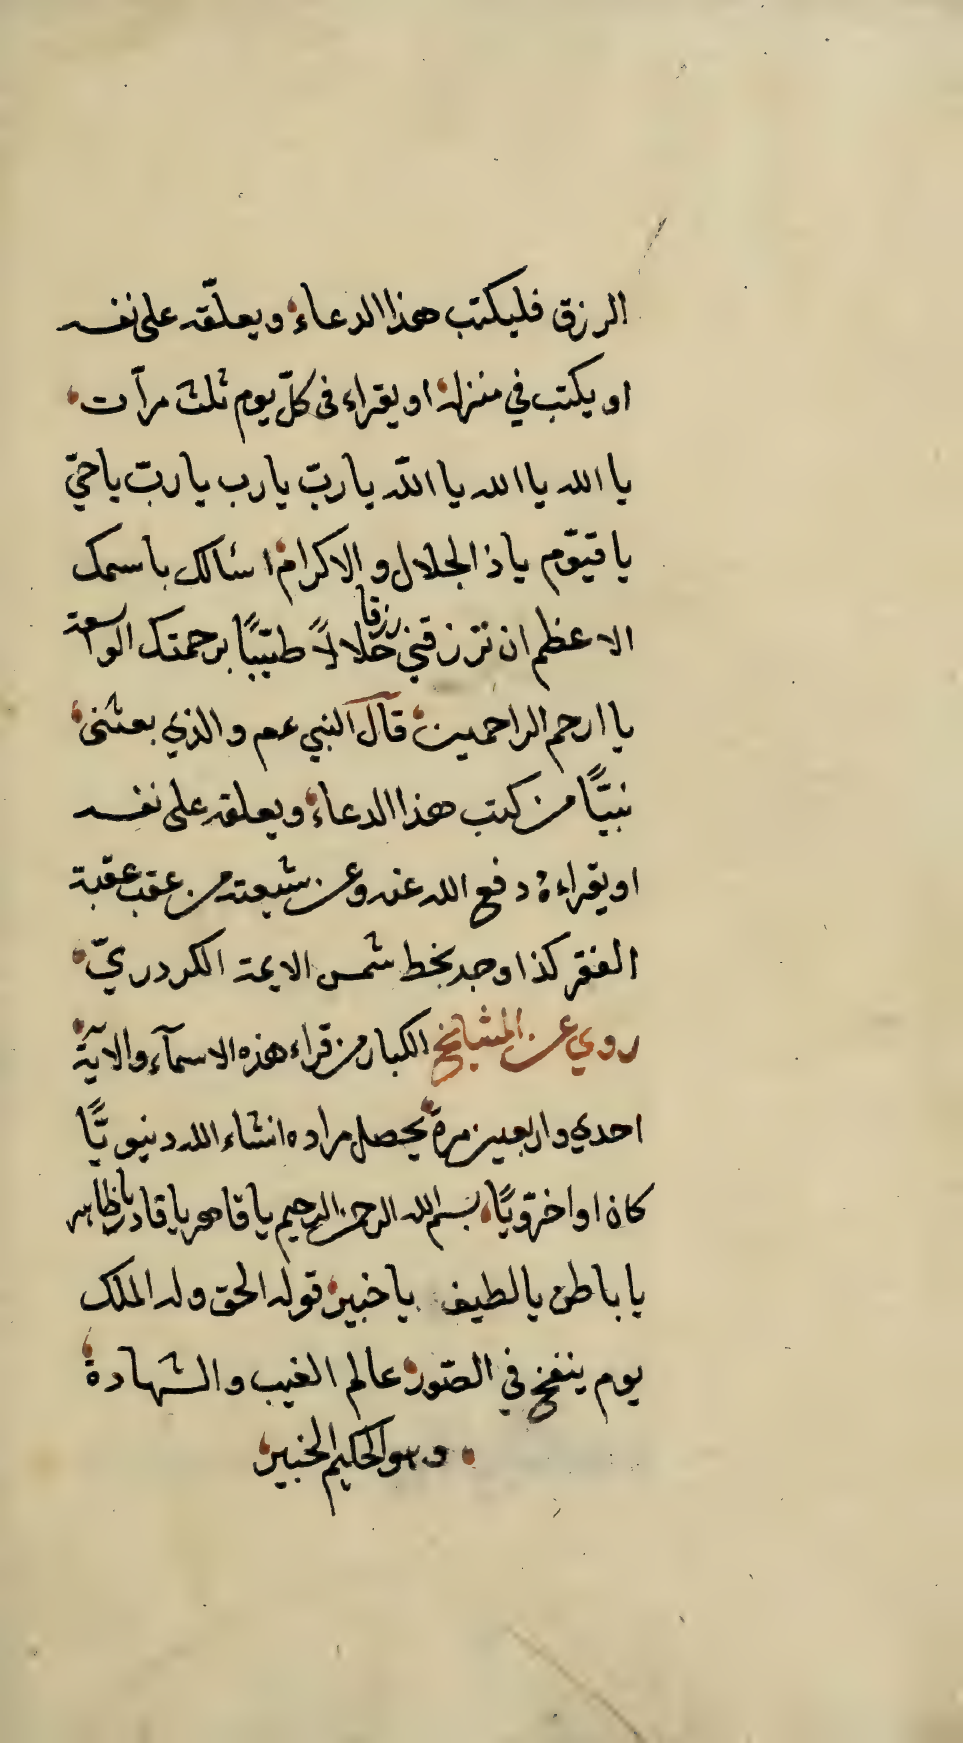 الرزق فليكتب هذا الدعاء ويعلّقه على نفسه
او يكتب في منزله او يقراء فى كلّ يوم ثلث مرآت
يا الله يا الله يا الله يا ربّ يا رب يا ربّ يا حيّ
يا قيّوم ياذ الجلال و الاكرام اسئالك باسمك
الاعظم ان ترزقني رزقا حلالاً طيّبًا برحمتك الواسعة
يا ارحم الراحمين قال النبي عم والذي بعثنى
نبيًّا من كتب هذا الدعاء ويعلقه على نفسه
او يقراءه دفع الله عنه وعن شيعته من عقب عقبة
الفقر كذا وجد بخط شمس الايمة الكردريّ
روي عن المشايخ الكبار من قراء هذه الاسمآء والآية
احدي واربعين مرة يحصل مراده انشاء الله دنيويًّا
كان او اخرويًّا بسم الله الرحمن الرحيم يا قاهر يا قادر يا ظاهر
يا باطن يا لطيف يا خبير قوله الحق وله الملك
يوم ينفخ في الصّور عالم الغيب والشهادة
وهو الحكيم الخبير